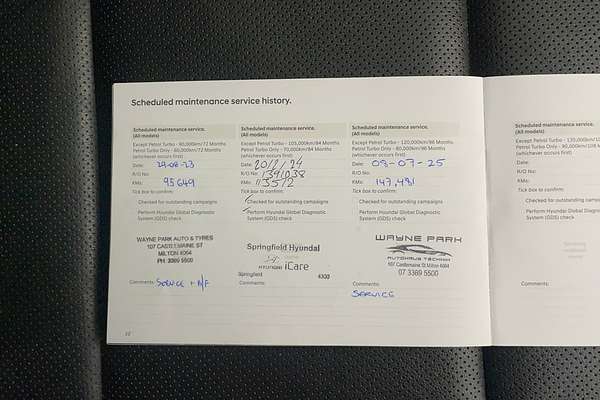 Scheduled maintenance service history.
Scheduled maintenance service.
(All models)
Except Petrol Turbo - 90,000km/72 Months
Petrol Turbo Only - 60,000km/72 Months
(whichever occurs first)
Date:
R/O No:
KMs: 95649
Tick box to confirm:
Checked for outstanding campaigns
Perform Hyundai Global Diagnostic
System (GDS) check
WAYNE PARK AUTO & TYRES
107 CASTLEMAINE ST
MILTON 4064
PH: 3369 5500
Comments: SERVICE +
Scheduled maintenance service.
(All models)
Except Petrol Turbo - 105,000km/84 Months
Petrol Turbo Only - 70,000km/84 Months
(whichever occurs first)
Date:
R/O No: 1391038
KMs:
Tick box to confirm:
Checked for outstanding campaigns
Perform Hyundai Global Diagnostic
System (GDS) check
Springfield Hyundai
HYUNDAI iCare
Springfield 4300
Comments:
Scheduled maintenance service.
(All models)
Except Petrol Turbo - 120,000km/96 Months
Petrol Turbo Only - 80,000km/96 Months
(whichever occurs first)
Date: 03-07-25
R/O No:
KMs: 147,481
Tick box to confirm:
Checked for outstanding campaigns
Perform Hyundai Global Diagnostic
System (GDS) check
WAYNE PARK
AUTOHAUS TECHNIK
107 Castlemaine St Milton 4064
07 3369 5500
Comments:
SERVICE
Scheduled maintenance
(All models)
Except Petrol Turbo
Petrol Turbo Only
(whichever occurs first)
Date:
R/O No:
KMs:
Tick box to confirm:
Checked for outstanding
Perform Hyundai Global
System (GDS) check
Comments: